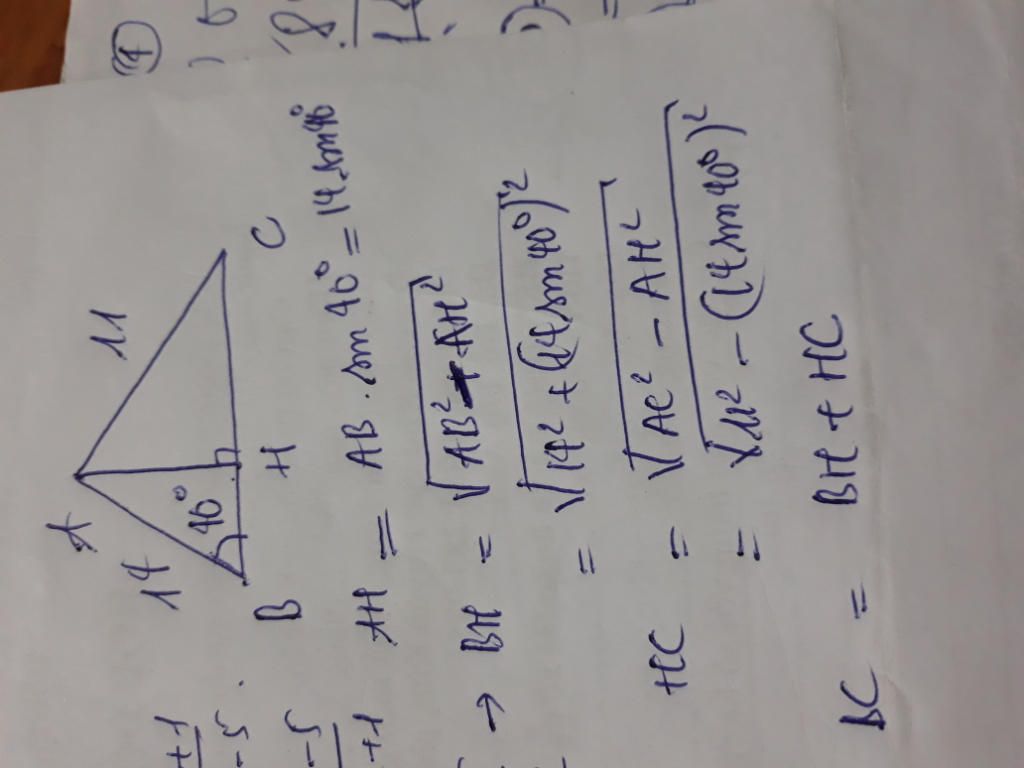 A
14
11
40°
B
H
C
AH = AB . sin 40° = 14 sin 40°
→ BH = √AB² + AH²
= √14² + (14 sin 40°)²
HC = √AC² − AH²
= √11² − (14 sin 40°)²
BC = BH + HC
+1
−5 .
−5
+1